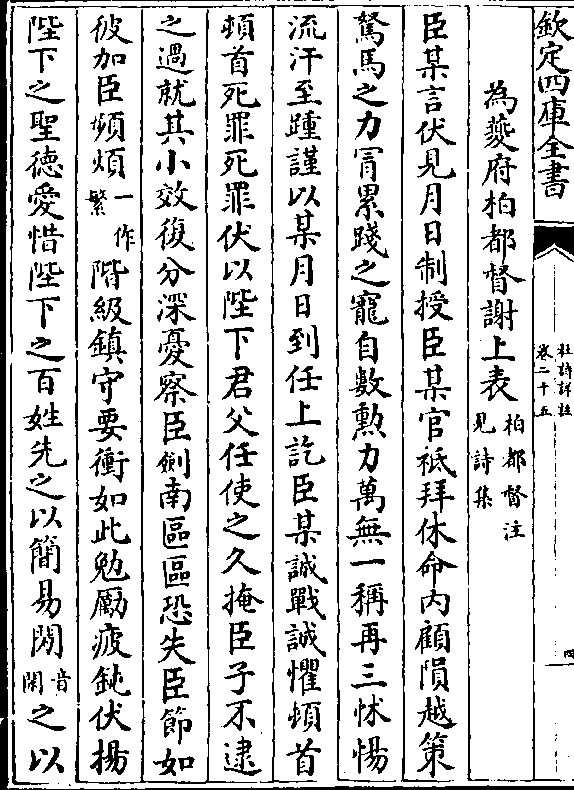 欽定四庫全書
杜詩詳註
卷二十五
四
為夔府柏都督謝上表柏都督注見詩集
臣某言伏見月日制授臣某官祗拜休命内顧隕越策
駑馬之力冐累踐之寵自數勲力萬無一稱再三怵惕
流汗至踵謹以某月日到任上訖臣某誠戰誠懼頓首
頓首死罪死罪伏以陛下君父任使之久掩臣子不逮
之過就其小效復分深憂察臣劍南區區恐失臣節如
彼加臣頻煩一作繁階級鎮守要衝如此勉勵疲鈍伏揚
陛下之聖德愛惜陛下之百姓先之以簡易閑音閑之以